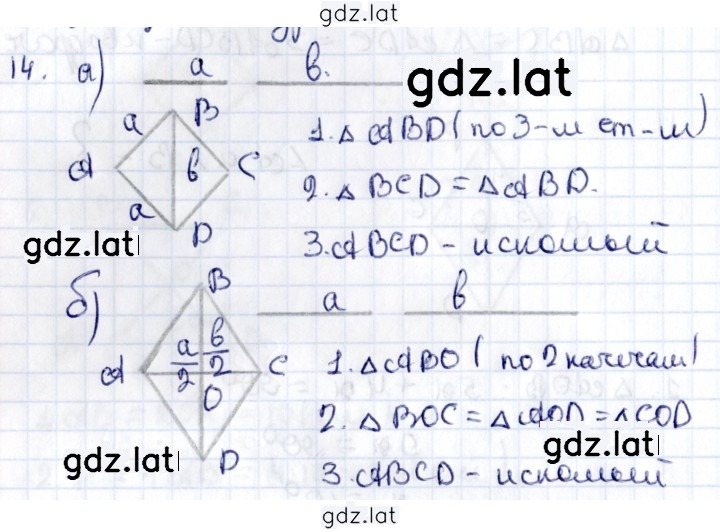 gdz.lat
14. а) a в.
gdz.lat
a B
A в C
a D
1. △ ABD (по 3-м ст-м)
2. △ BCD = △ ABD.
3. ABCD - искомый
gdz.lat
б) B a в
A a/2 в/2 C
O
D
1. △ABO (по 2 катетам)
2. △ BOC = △AOD = △COD
gdz.lat
gdz.lat
3. ABCD - искомый
gdz.lat